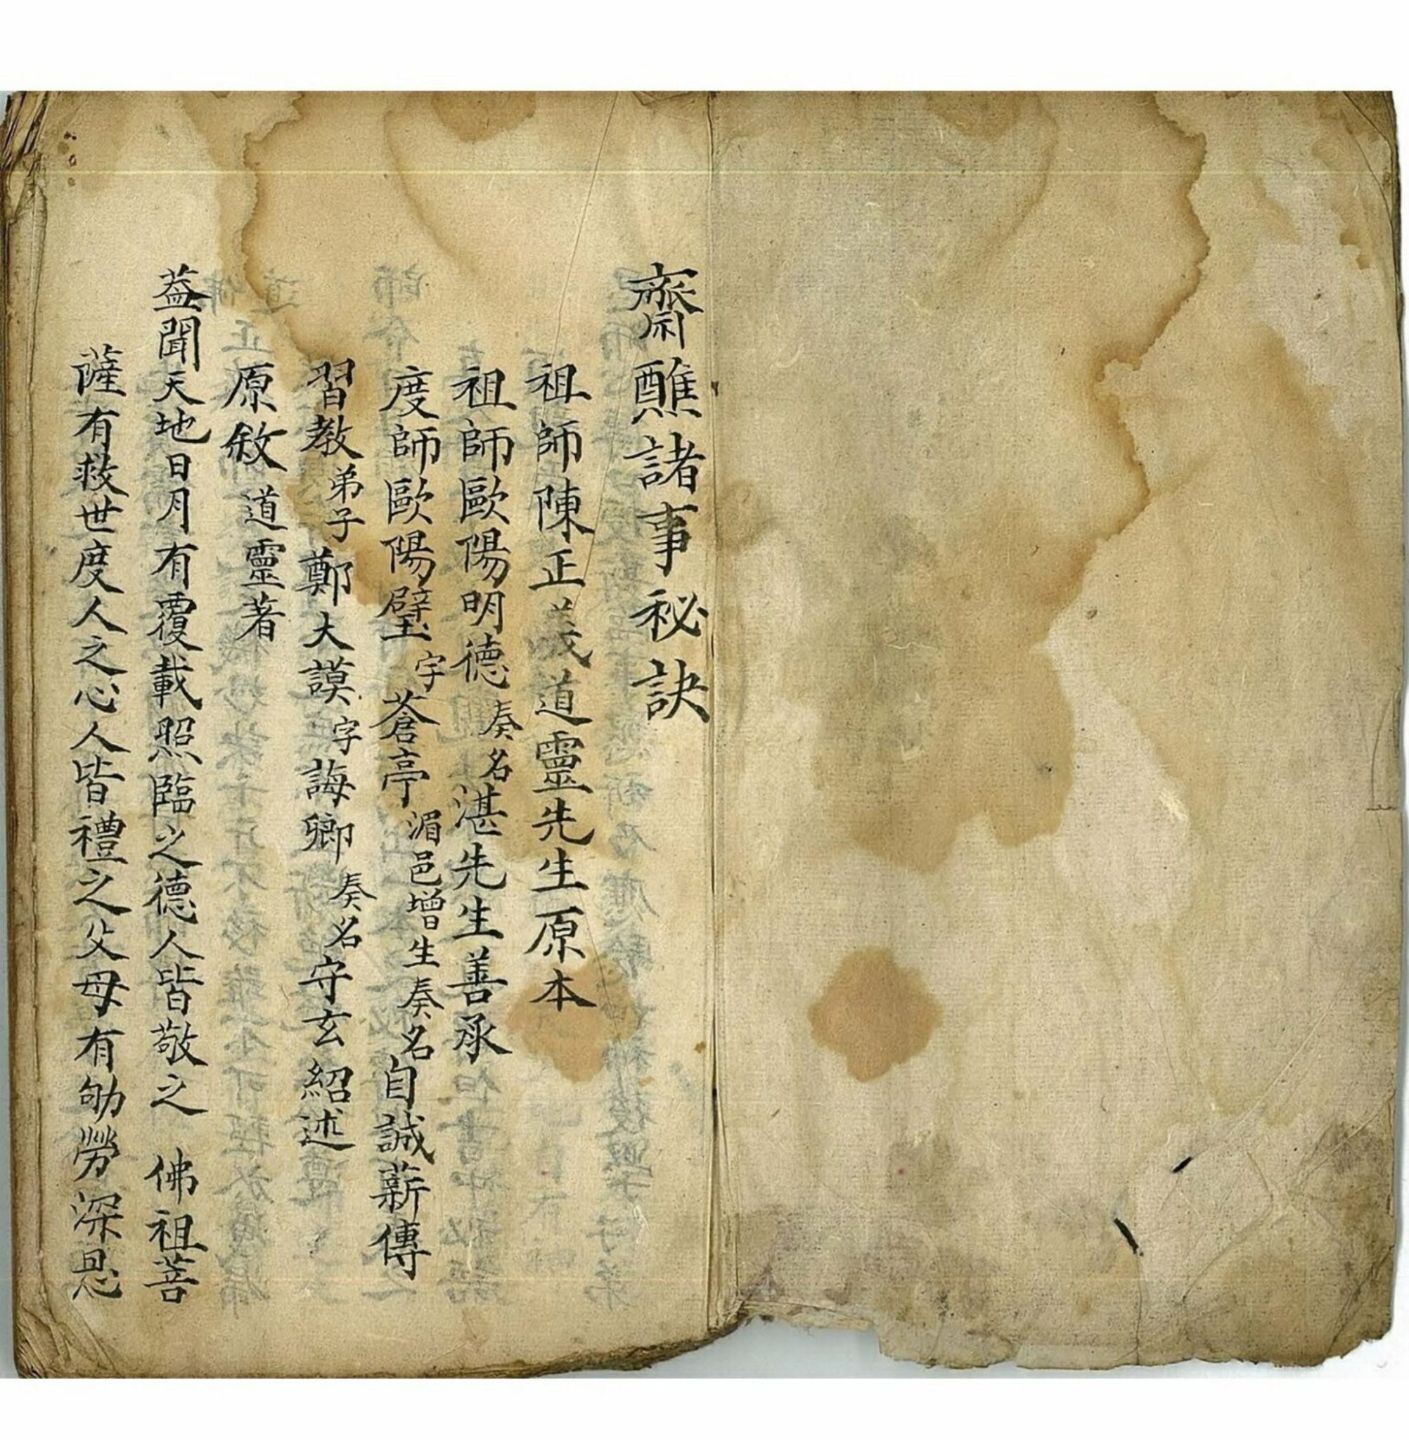 齋醮諸事秘訣
祖師陳正義道靈先生原本
祖師歐陽明德奏名湛先生善承
度師歐陽璧字蒼亭湄邑增生奏名自誠薪傳
習教弟子鄭大謨字誨卿奏名守玄紹述
原敘道靈著
蓋聞天地日月有覆載照臨之德人皆敬之 佛祖菩
薩有救世度人之心人皆禮之父母有劬勞深恩